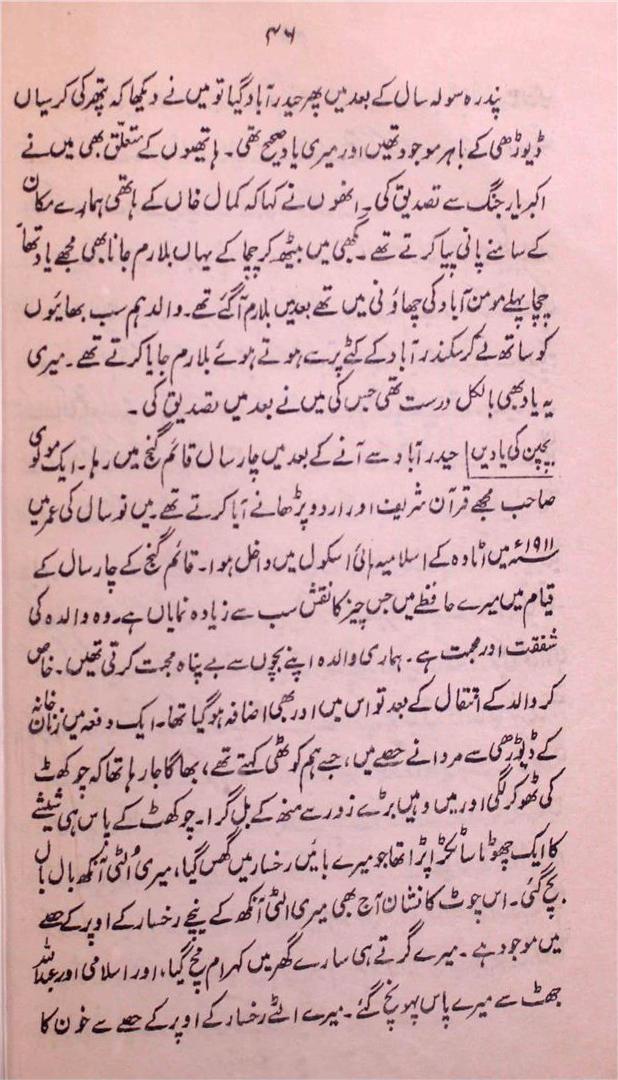 ۳۶
پندرہ سولہ سال کے بعد میں پھر حیدرآباد گیا تو میں نے دیکھا کہ پتھر کی کرسیاں
ڈیوڑھی کے باہر موجود تھیں اور میری یاد صحیح تھی۔ ہاتھیوں کے متعلق بھی میں نے
اکبر یار جنگ سے تصدیق کی۔ انھوں نے کہا کہ کمال خاں کے ہاتھی ہمارے مکان
کے سامنے پانی پیا کرتے تھے۔ بگھی میں بیٹھ کر چچا کے یہاں بلارم جانا بھی مجھے یاد تھا
چچا پہلے مومن آباد کی چھاؤنی میں تھے بعد میں بلارم آگئے تھے۔ والد ہم سب بھائیوں
کو ساتھ لے کر سکندرآباد کے کٹے پر سے ہوتے ہوئے بلارم جایا کرتے تھے۔ میری
یہ یاد بھی بالکل درست تھی جس کی میں نے بعد میں تصدیق کی۔
بچپن کی یادیں | حیدرآباد سے آنے کے بعد میں چار سال قائم گنج میں رہا۔ ایک مولوی
صاحب مجھے قرآن شریف اور اردو پڑھانے آیا کرتے تھے۔ میں نو سال کی عمر میں
۱۹۱۱ء میں اٹاوہ کے اسلامیہ ہائی اسکول میں داخل ہوا۔ قائم گنج کے چار سال کے
قیام میں میرے حافظے میں جس چیز کا نقش سب سے زیادہ نمایاں ہے۔ وہ والدہ کی
شفقت اور محبت ہے۔ ہماری والدہ اپنے بچوں سے بے پناہ محبت کرتی تھیں۔ خاص
کر والد کے انتقال کے بعد تو اس میں اور بھی اضافہ ہوگیا تھا۔ ایک دفعہ میں زنان خانہ
کے ڈیوڑھی سے مردانے حصے میں، جسے ہم کوٹھی کہتے تھے، بھاگا جارہا تھا کہ چوکھٹ
کی ٹھوکر لگی اور میں وہیں بڑے زور سے منھ کے بل گرا۔ چوکھٹ کے پاس ہی شیشے
کا ایک چھوٹا سا ٹکڑا پڑا تھا جو میرے بائیں رخسار میں گھس گیا، میری اُلٹی آنکھ بال بال
بچ گئی۔ اس چوٹ کا نشان آج بھی میری الٹی آنکھ کے نیچے رخسار کے اوپر کے حصے
میں موجود ہے۔ میرے گرتے ہی سارے گھر میں کہرام مچ گیا، اور اسلامی اور عبداللہ
جھٹ سے میرے پاس پہونچ گئے۔ میرے الٹے رخسار کے اوپر کے حصے سے خون کا